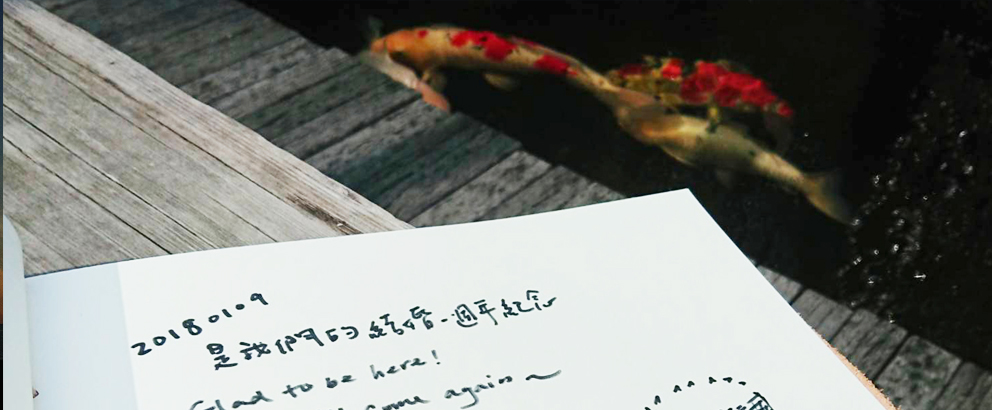 20180109
是我們的結婚一週年紀念
Glad to be here!
come again~